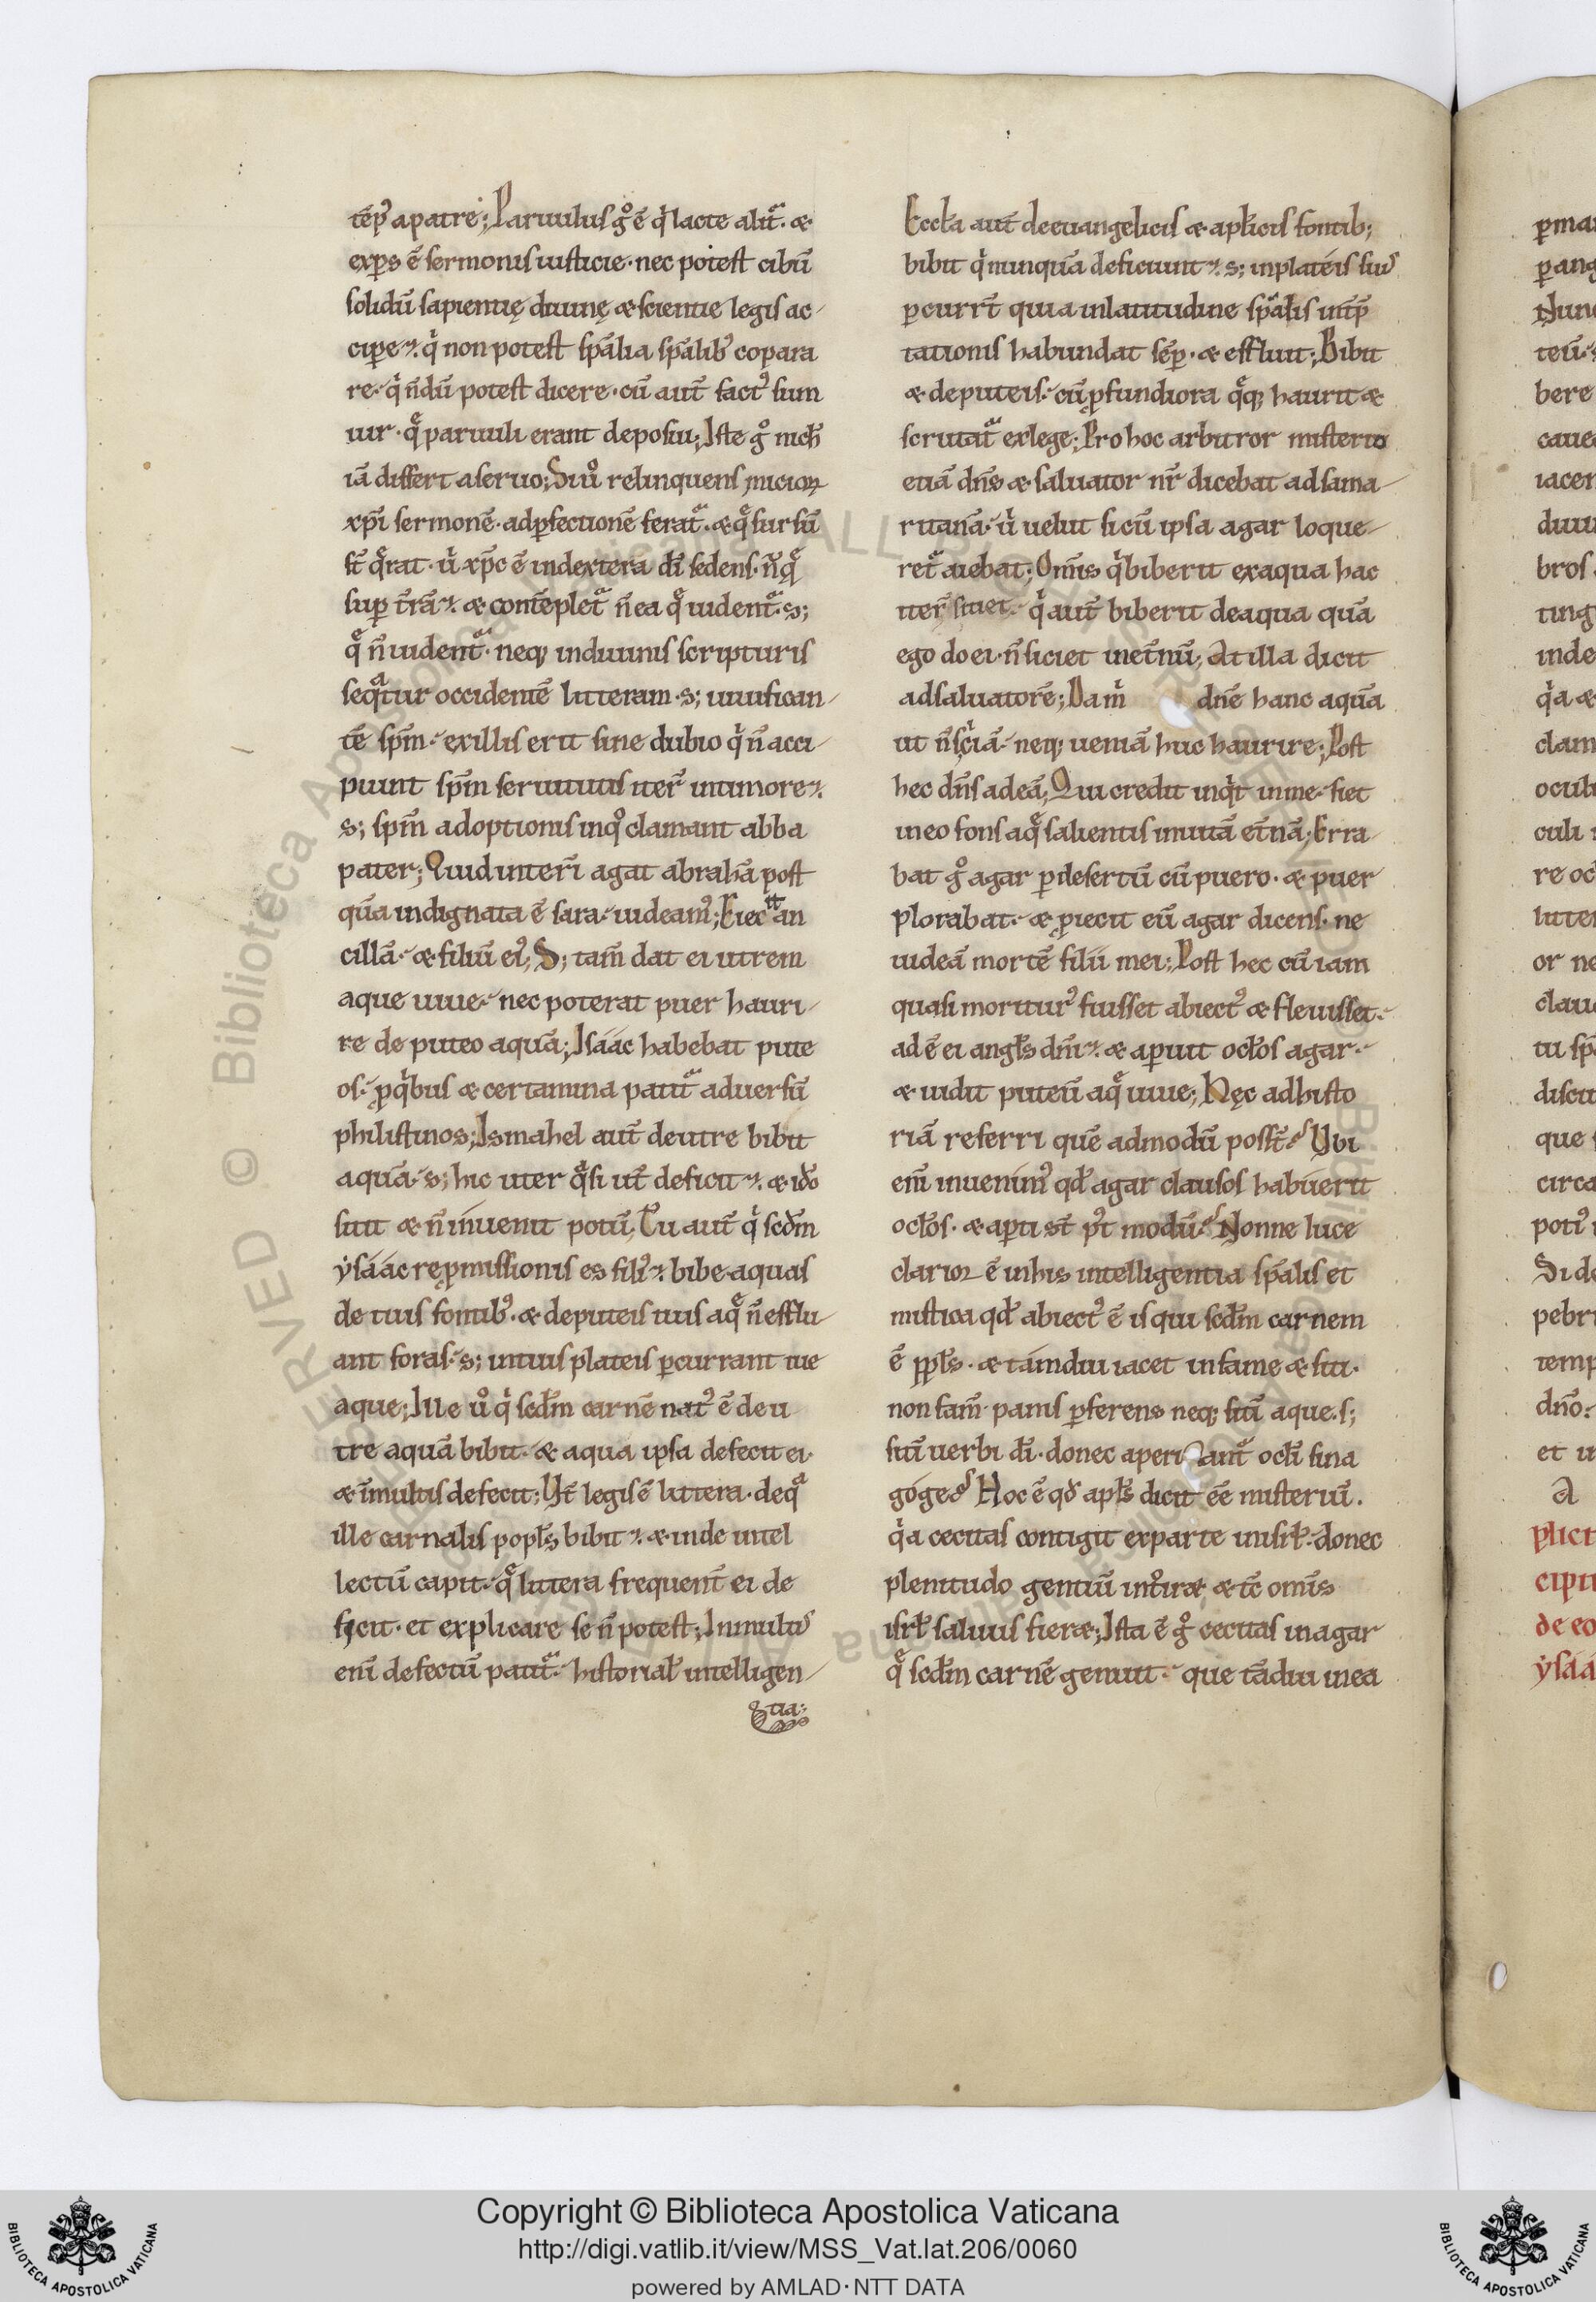 tēp᷒ a patre; Paruulus g̊ ē q̇ lacte alit᷑. æ
exꝑs ē sermonis iusticie. nec potest cibū
solidū sapientię diuinę æ scientie legis ac-
ciꝑe. q̇ non potest sp̄alia sp̄alib᷒ cōpara
re. q̇ n̄dū potest dicere. cū aut̄ fact᷒ sum
uir. q̄ paruuli erant deposui; Iste g̊ nich̄
iā differt a seruo; Si ů relinquens inicioꝝ
xp̄i sermonē. ad ꝑfectionē ferat᷑. æ q̄ sursū
st̄ q̄rat. ů xp̄c ē in dextera dī sedens. n̄ q̄
suꝑ t̄rā. æ contēplet᷑ n̄ ea q̄ uident᷑. s;
q̄ n̄ uident᷑. neq; in diuinis scripturis
seqͣtur occidentē litteram. s; uiuifican-
tē sp̄m. ex illis erit sine dubio q̇ n̄ acci-
piunt sp̄m seruitutis iter̄ in timore.
s; sp̄m adoptionis in q̊ clamant abba
pater; Quid interī agat abrahā post
quā indignata ē sara. uideam᷒; Eiecit an
cillā. æ filiū ei᷒; S; tam̄ dat ei utrem
aque uiue. nec poterat puer hauri-
re de puteo aquā; Isáác habebat pute
os. ꝑ q̇bus æ certamina patit᷑ aduersū
philistinos; Ismahel aut̄ de utre bibit
aquā. s; hic uter q̄si ut̄ deficit. æ iđo
sitit æ n̄ inuenit potū; Tu aut̄ q̇ scđm
ẏsáác repromissionis es fili᷒. bibe aquas
de tuis fontib᷒. æ de puteis tuis aq̄ n̄ efflu-
ant foras. s; in tuis plateis ꝑcurrant tue
aque; Ille ů q̇ scđm carnē nat᷒ ē de u
tre aquā bibit. æ aqua ipsa defecit ei.
æ ī multis defecit; Vt̄ legis ē littera. de qͣ
ille carnalis popl̄s bibit. æ inde intel
lectū capit. q̄ littera frequent̄ ei de
ficit. et explicare se n̄ potest; In multis
enī defectū patit᷑. historial̄ intelligen-
tia:
Eccl̄a aut̄ de euangelicis æ apl̄icis fontib;
bibit q̇ nunquā deficiunt. s; in plateis suis
ꝑcurrt̄ quia in latitudine sp̄alis int̄p̄
tationis habundat sēꝑ. æ effluit; Bibit
æ de puteis. cū ꝓfundiora q̄q; haurit æ
scrutat᷑ ex lege; Pro hoc arbitror misterio
etiā dn̄s æ saluator nr̄ dicebat ad sama-
ritanā. ů uelut si cū ipsa agar loque-
ret᷑ aiebat; Omīs q̇ biberit ex aqua hac
iter̄ sitiet. q̇ aut̄ biberit de aqua quā
ego do ei. n̄ siciet in et̄nū; At illa dicit
ad saluatorē; Da m̊ dn̄e hanc aquā
ut n̄ sic̣iā. neq; ueniā huc haurire; Post
hec dn̄s ad eā; Qui credit inq̇t in me. fiet
in eo fons aq̄ salientis in uitā et̄nā; Erra-
bat g̊ agar ꝑ desertū cū puero. æ puer
plorabat. æ ꝓiecit eū agar dicens. ne
uideā mortē filii mei; Post hec cū iam
quasi moritur᷒ fuisset abiect᷒ æ fleuisset.
ad ē ei angl̄s dn̄i. æ aꝑuit ocl̄os agar.
æ uidit puteū aq̄ uiue; Hęc ad histo
riā referri quē admodū posst̄? Vbi
enī inuenim᷒ qđ agar clausos habuerit
ocl̄os. æ aꝑti st̄ p᷒t modū? Nonne luce
clarioꝝ ē in his intelligentia sp̄alis et
mistica qđ abiect᷒ ē is qui scđm carnem
ē ppl̄s. æ tāmdiu iacet in fame æ siti.
non fam̄ panis ꝑferens neq; sitī aque. s;
sitī uerbi dī. donec aperiant᷑ ocl̄i sina
góge? Hoc ē qđ apl̄s dicit eē misteriū.
q̇a cecitas contigit ex parte in isrl̄. donec
plenitudo gentiū int̊iræ, æ tc̄ omīs
isrl̄ saluus fieræ; Ista ē g̊ cecitas in agar
q̄ scđm carnē genuit. que tādiu in ea
Copyright © Biblioteca Apostolica Vaticana
http://digi.vatlib.it/view/MSS_Vat.lat.206/0060
powered by AMLAD·NTT DATA